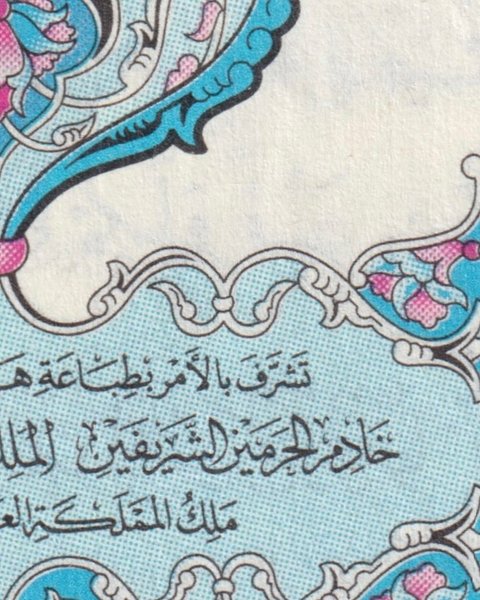 تَشَرَّفَ بِالأَمْرِ بِطِبَاعَةِ
خَادِمُ الحَرَمَيْنِ الشَّرِيفَيْنِ
مَلِكُ المَمْلَكَةِ